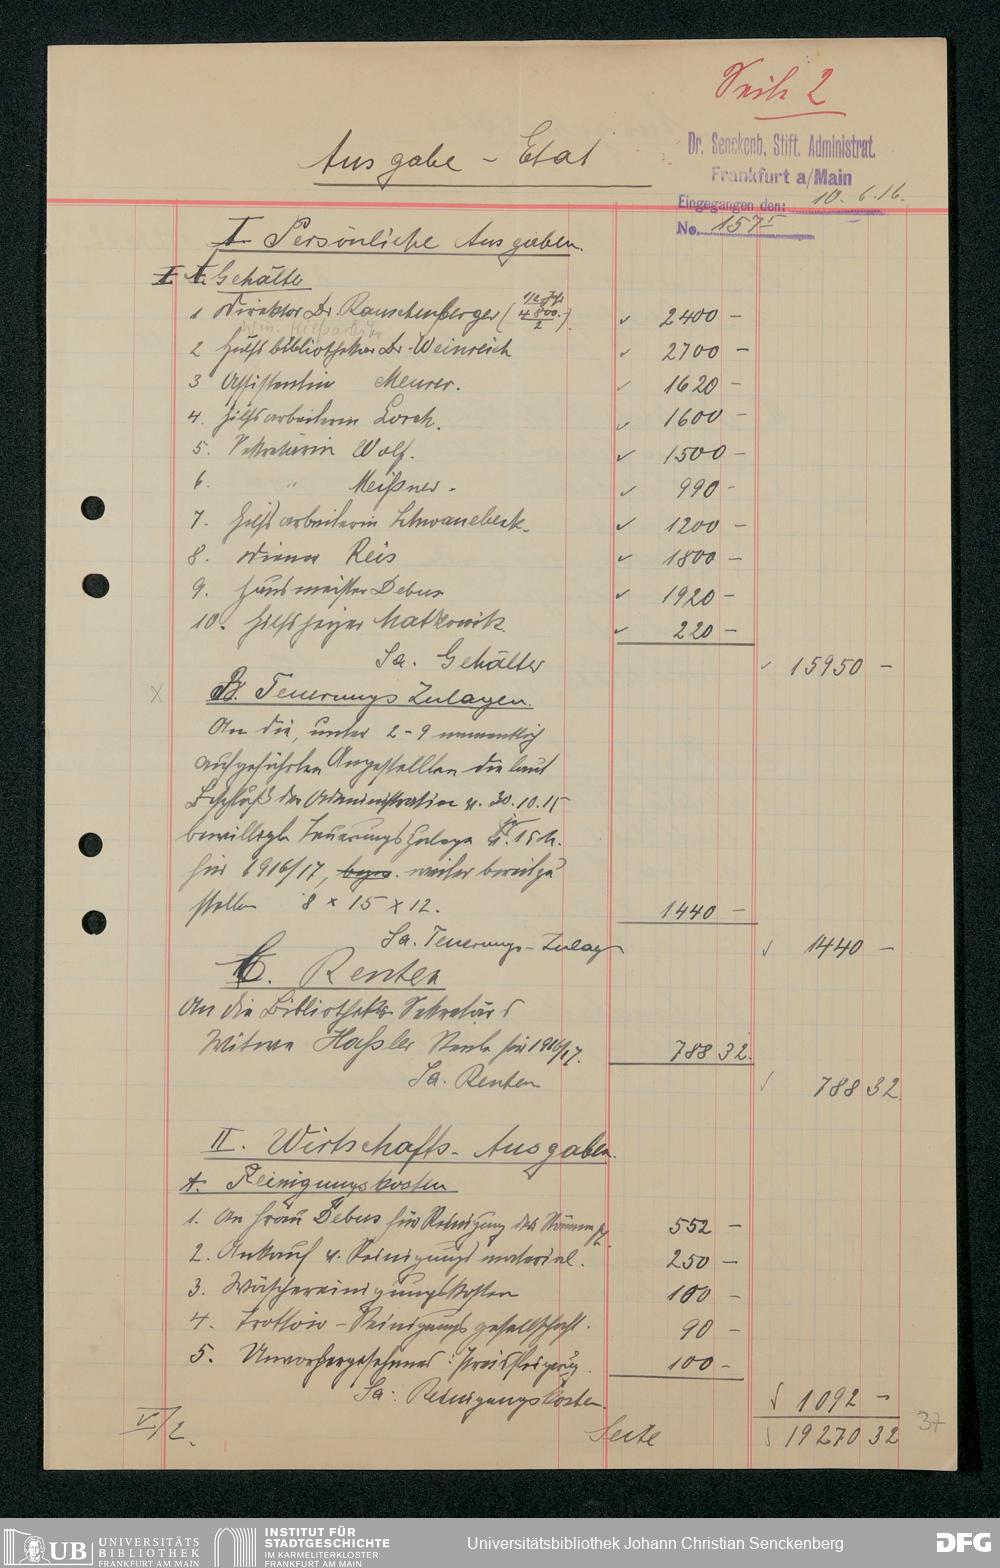 Seite 2
Ausgabe - Etat
Dr. Senckenb. Stift. Administrat.
Frankfurt a/Main
Eingegangen den: 10. 6. 16.
No. 157
I Persönliche Ausgaben.
A. Gehälter
1 Direktor Dr. Rauschenberger (4800.- / 2) 2400 -
2 Hülfsbibliothekar Dr. Weinreich 2700 -
3 Assistentin Meurer. 1620 -
4. Hilfsarbeiterin Lorch. 1600 -
5. Sekretärin Wolf. 1500 -
6. " Meißner - 990 -
7. Hilfsarbeiterin Schwanebeck. 1200 -
8. Diener Reis 1800 -
9. Hausmeister Debus 1920 -
10. Hilfsheizer Matkowitz 220 -
Sa. Gehälter 15950 -
B. Teuerungs Zulagen.
An die, unter 2 - 9 namentlich
aufgeführten Angestellten die laut
Beschluß der Administration v. 30.10.15
bewilligte Teuerungszulage v. 15 M.
für 1916/17, weiter bereitzu
stellen 8 x 15 x 12. 1440 -
Sa. Teuerungs-Zulage 1440 -
C. Renten
An die Bibliotheks-Sekretärs
Witwe Haßler Rente für 1916/17. 788 32.
Sa. Renten 788 32.
II. Wirtschafts-Ausgaben.
A. Reinigungskosten
1. An Frau Debus für Reinigung der Räume 552 -
2. Ankauf v. Reinigungsmaterial. 250 -
3. Wäschereinigungskosten 100 -
4. Trottoir-Reinigungsgesellschaft. 90 -
5. Unvorhergesehenes: Preissteigerung. 100 -
Sa: Reinigungskosten. 1092 -
V/2. Seite 19270 32
37
UB UNIVERSITÄTS
BIBLIOTHEK
FRANKFURT AM MAIN
INSTITUT FÜR
STADTGESCHICHTE
IM KARMELITERKLOSTER
FRANKFURT AM MAIN
Universitätsbibliothek Johann Christian Senckenberg
DFG